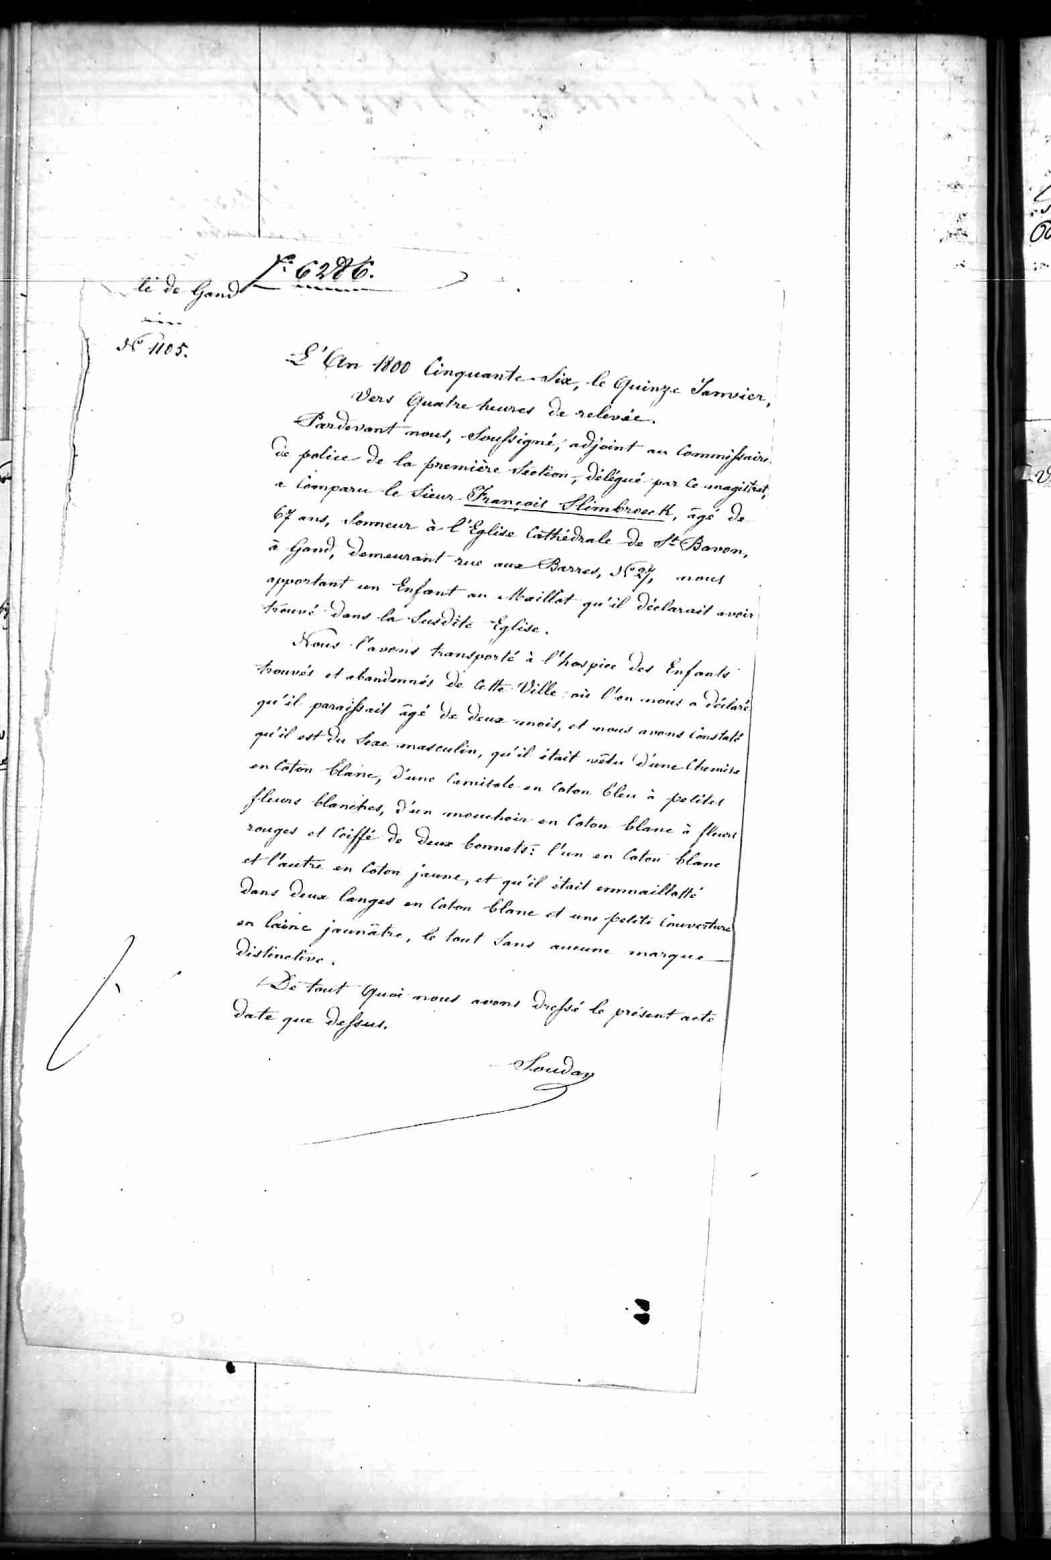 Fo. 6286.
té de Gand
No 1105.
L'An 1800 Cinquante-Six, le Quinze Janvier,
vers Quatre heures de relevée.
Pardevant nous, Soussigné, adjoint au Commissaire
de police de la première Section, délégué par ce magistrat,
a Comparu le Sieur François Slimbroeck, âgé de
67 ans, Sonneur à l'Eglise Cathédrale de St Bavon,
à Gand, demeurant rue aux Barres, No 27, nous
apportant un Enfant au Maillot qu'il déclarait avoir
trouvé dans la Susdite Eglise.
Nous l'avons transporté à l'hospice des Enfants
trouvés et abandonnés de Cette Ville où l'on nous a déclaré
qu'il paraissait âgé de deux mois, et nous avons Constaté
qu'il est du Sexe masculin, qu'il était vêtu d'une Chemise
en Coton blanc, d'une Camisole en Coton bleu à petites
fleurs blanches, d'un mouchoir en Coton blanc à fleurs
rouges et Coiffé de deux bonnets: l'un en Coton blanc
et l'autre en Coton jaune, et qu'il était emmaillotté
dans deux langes en Coton blanc et une petite Couverture
en laine jaunâtre, le tout Sans aucune marque
distinctive.
De tout Quoi nous avons dressé le présent acte
date que dessus.
Soudan